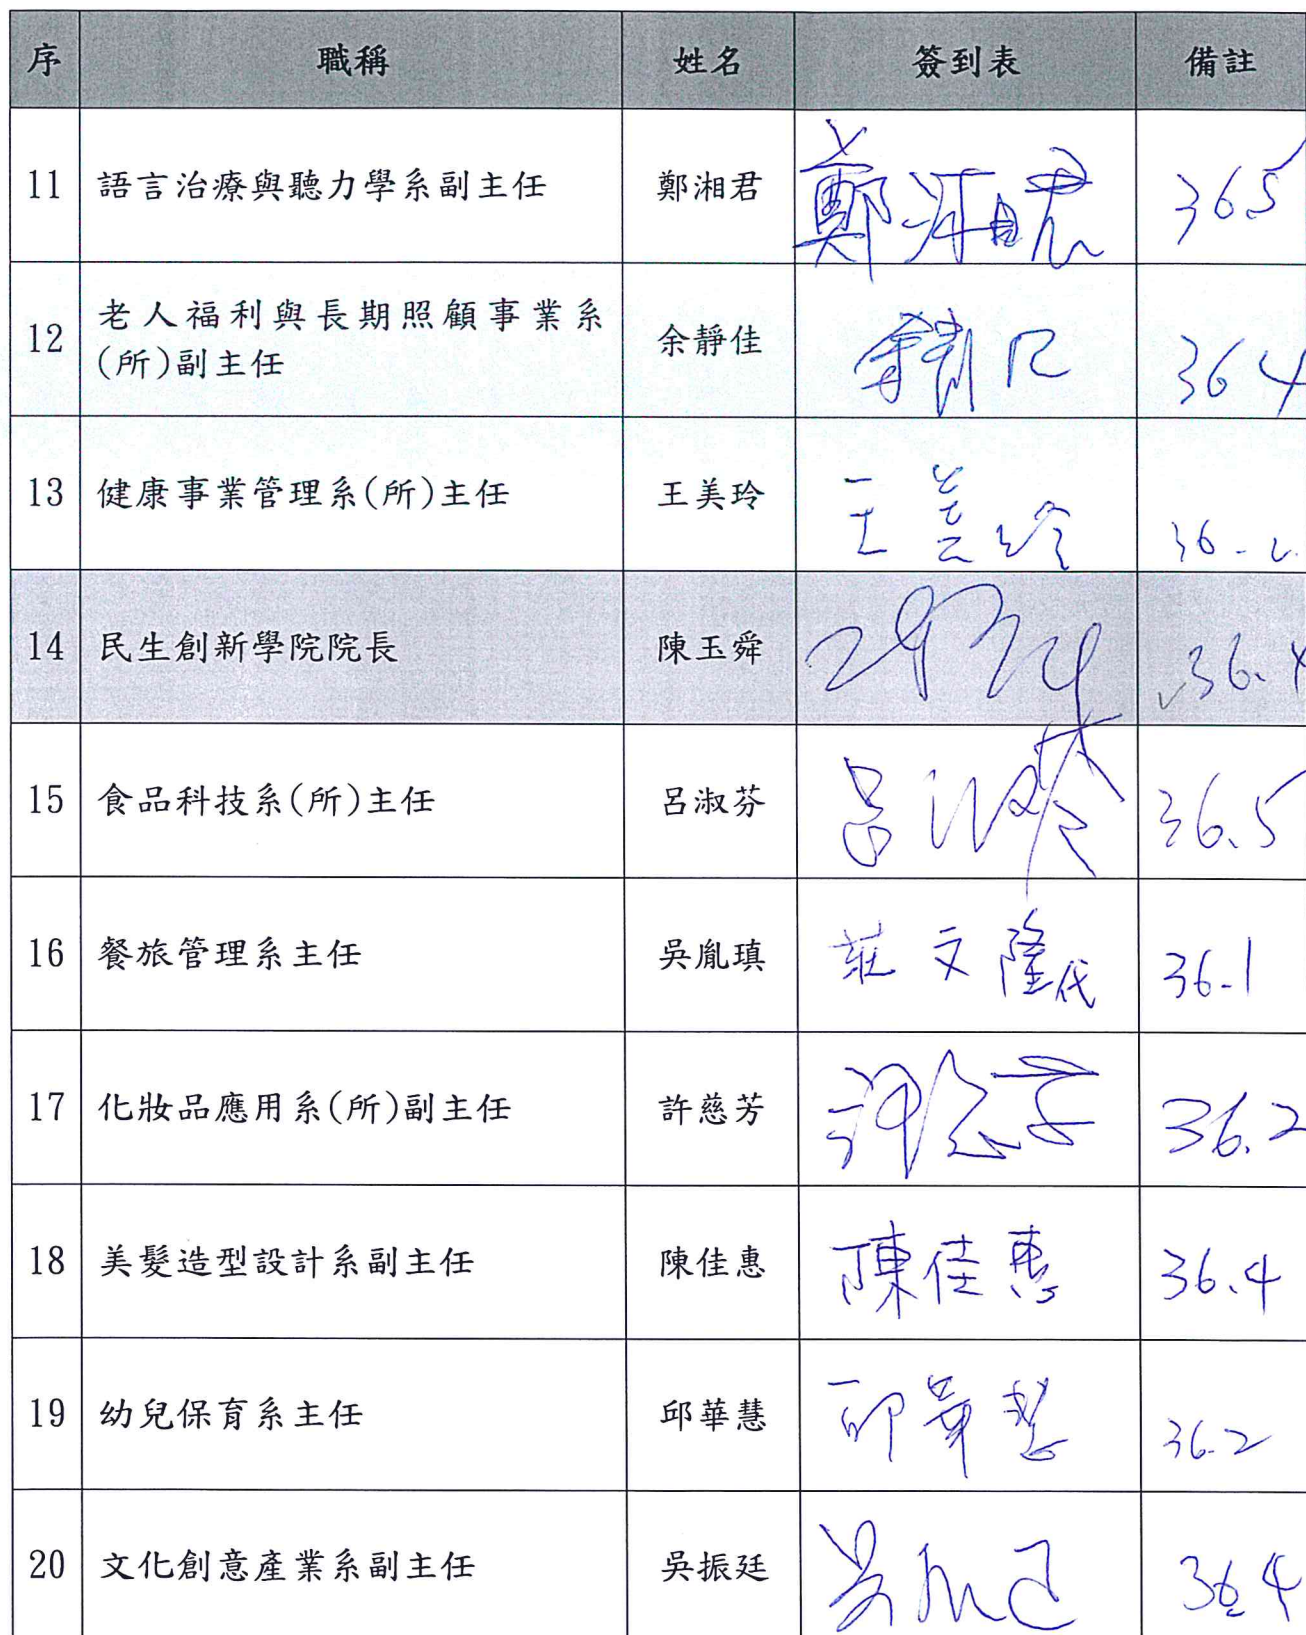 序 職稱 姓名 簽到表 備註
11 語言治療與聽力學系副主任 鄭湘君 鄭湘君 36.5
12 老人福利與長期照顧事業系
(所)副主任 余靜佳 36.4
13 健康事業管理系(所)主任 王美玲 王美玲 36.2
14 民生創新學院院長 陳玉舜 36.4
15 食品科技系(所)主任 呂淑芬 呂淑芬 36.5
16 餐旅管理系主任 吳胤瑱 莊文隆代 36.1
17 化妝品應用系(所)副主任 許慈芳 許慈芳 36.2
18 美髮造型設計系副主任 陳佳惠 陳佳惠 36.4
19 幼兒保育系主任 邱華慧 邱華慧 36.2
20 文化創意產業系副主任 吳振廷 吳振廷 36.4